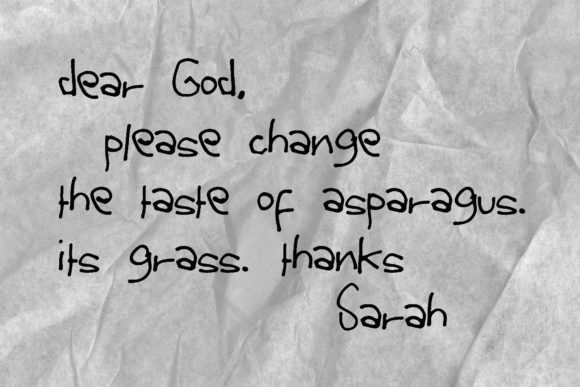 dear God,
please change
the taste of asparagus.
its grass. thanks
Sarah